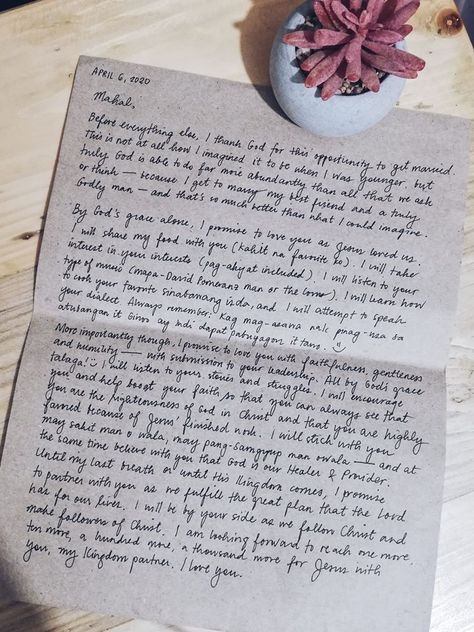 APRIL 6, 2020
Mahal,
Before everything else, I thank God for this opportunity to get married.
This is not at all how I imagined it to be when I was younger, but
truly God is able to do far more abundantly than all that we ask
or think — because I get to marry my best friend and a truly
Godly man — and that's so much better than what I could imagine.
By God's grace alone, I promise to love you as Jesus loved us.
I will share my food with you (kahit na favorite ko). I will take
interest in your interests (pag-akyat included). I will listen to your
type of music (mapa-David Pomeranz man or the). I will learn how
to cook your favorite sinabawang isda, and I will attempt to speak
your dialect. Always remember: kag mag-asawa
it Ginoo ay indi dapat it tawo.
More importantly though, I promise to love you with faithfulness, gentleness
and humility — with submission to your leadership. All by God's grace
talaga! I will listen to your stories and struggles. I will encourage
you and help boost your faith so that you can always see that
you are the righteousness of God in Christ and that you are highly
favored because of Jesus' finished work. I will stick with you
may sakit man o wala, may pang-samgyup man o wala — and at
the same time believe with you that God is our Healer & Provider.
Until my last breath or until His Kingdom comes, I promise
to partner with you as we fulfill the great plan that the Lord
has for our lives. I will be by your side as we follow Christ and
make followers of Christ. I am looking forward to reach one more,
ten more, a hundred more, a thousand more for Jesus with
you, my Kingdom partner. I love you.